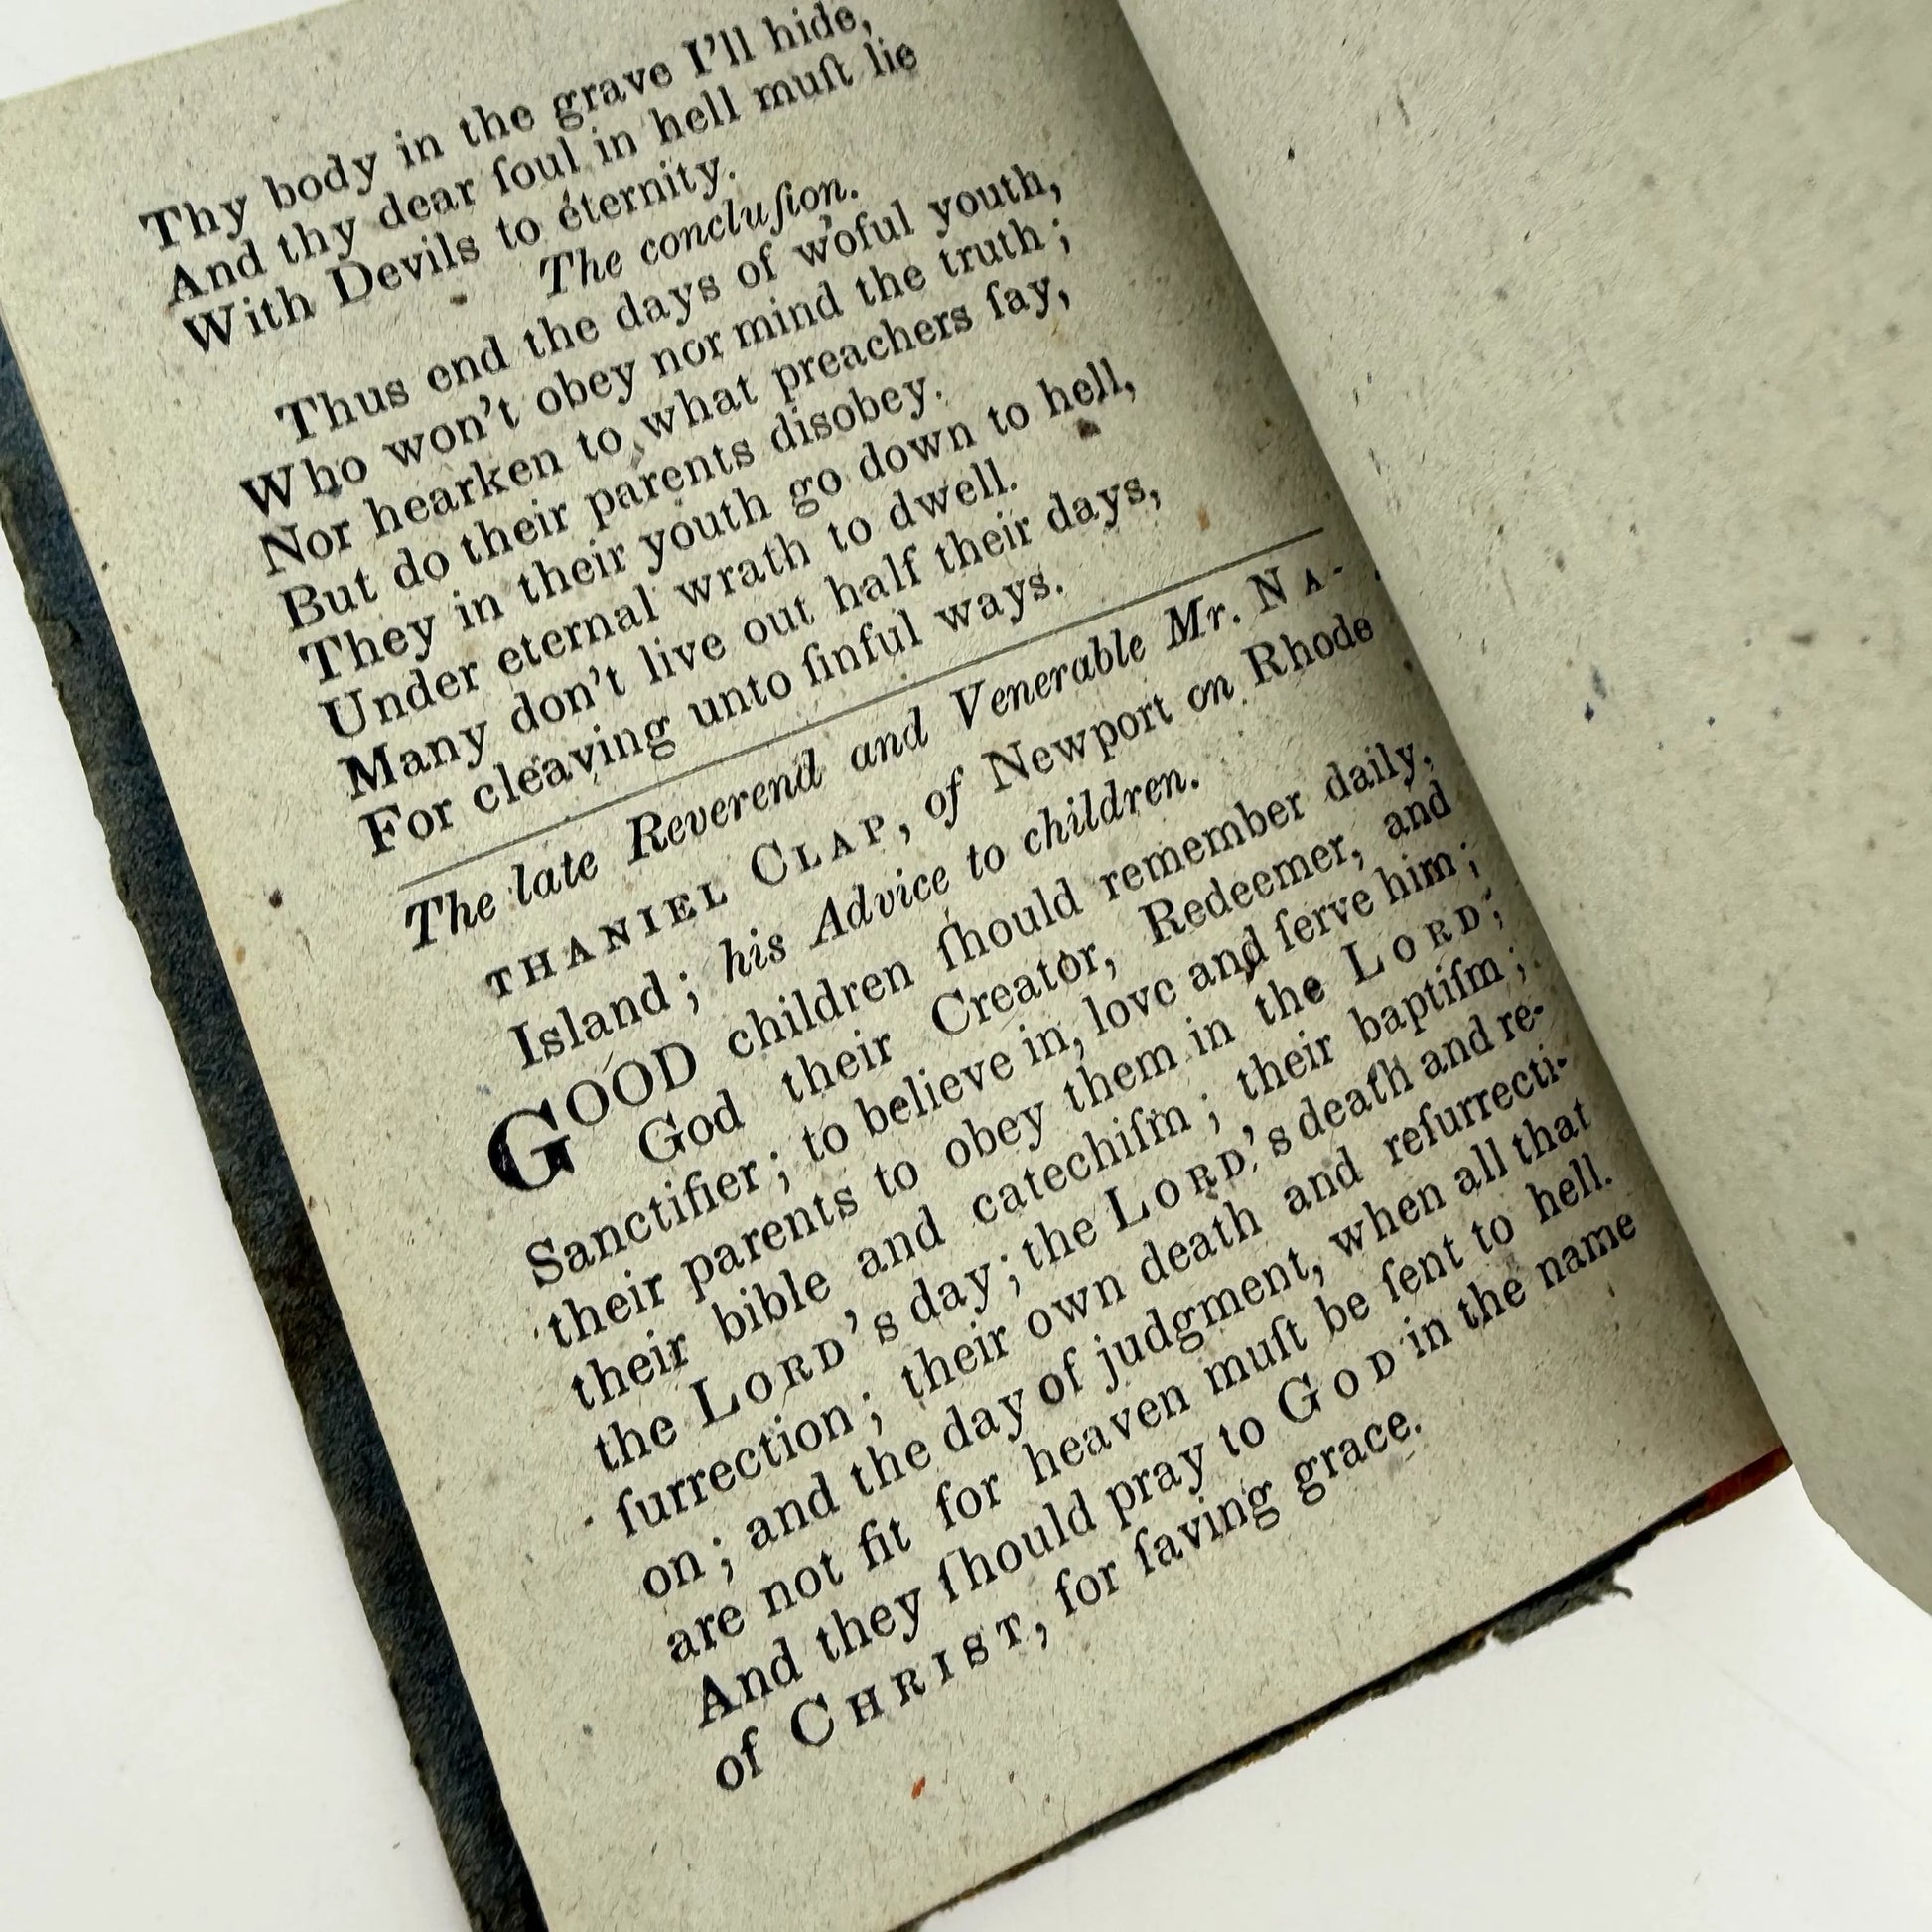 Thy body in the grave I'll hide,
And thy dear ſoul in hell muſt lie
With Devils to eternity.
The concluſion.
Thus end the days of woful youth,
Who won't obey nor mind the truth;
Nor hearken to what preachers ſay,
But do their parents disobey.
They in their youth go down to hell,
Under eternal wrath to dwell.
Many don't live out half their days,
For cleaving unto ſinful ways.
The late Reverend and Venerable Mr. NA-
THANIEL CLAP, of Newport on Rhode
Island; his Advice to children.
GOOD children ſhould remember daily,
God their Creator, Redeemer, and
Sanctifier; to believe in, love and ſerve him;
their parents to obey them in the LORD;
their bible and catechiſm; their baptiſm;
the LORD's day; the LORD's death and re-
ſurrection; their own death and reſurrecti-
on; and the day of judgment, when all that
are not fit for heaven muſt be ſent to hell.
And they ſhould pray to GOD in the name
of CHRIST, for ſaving grace.